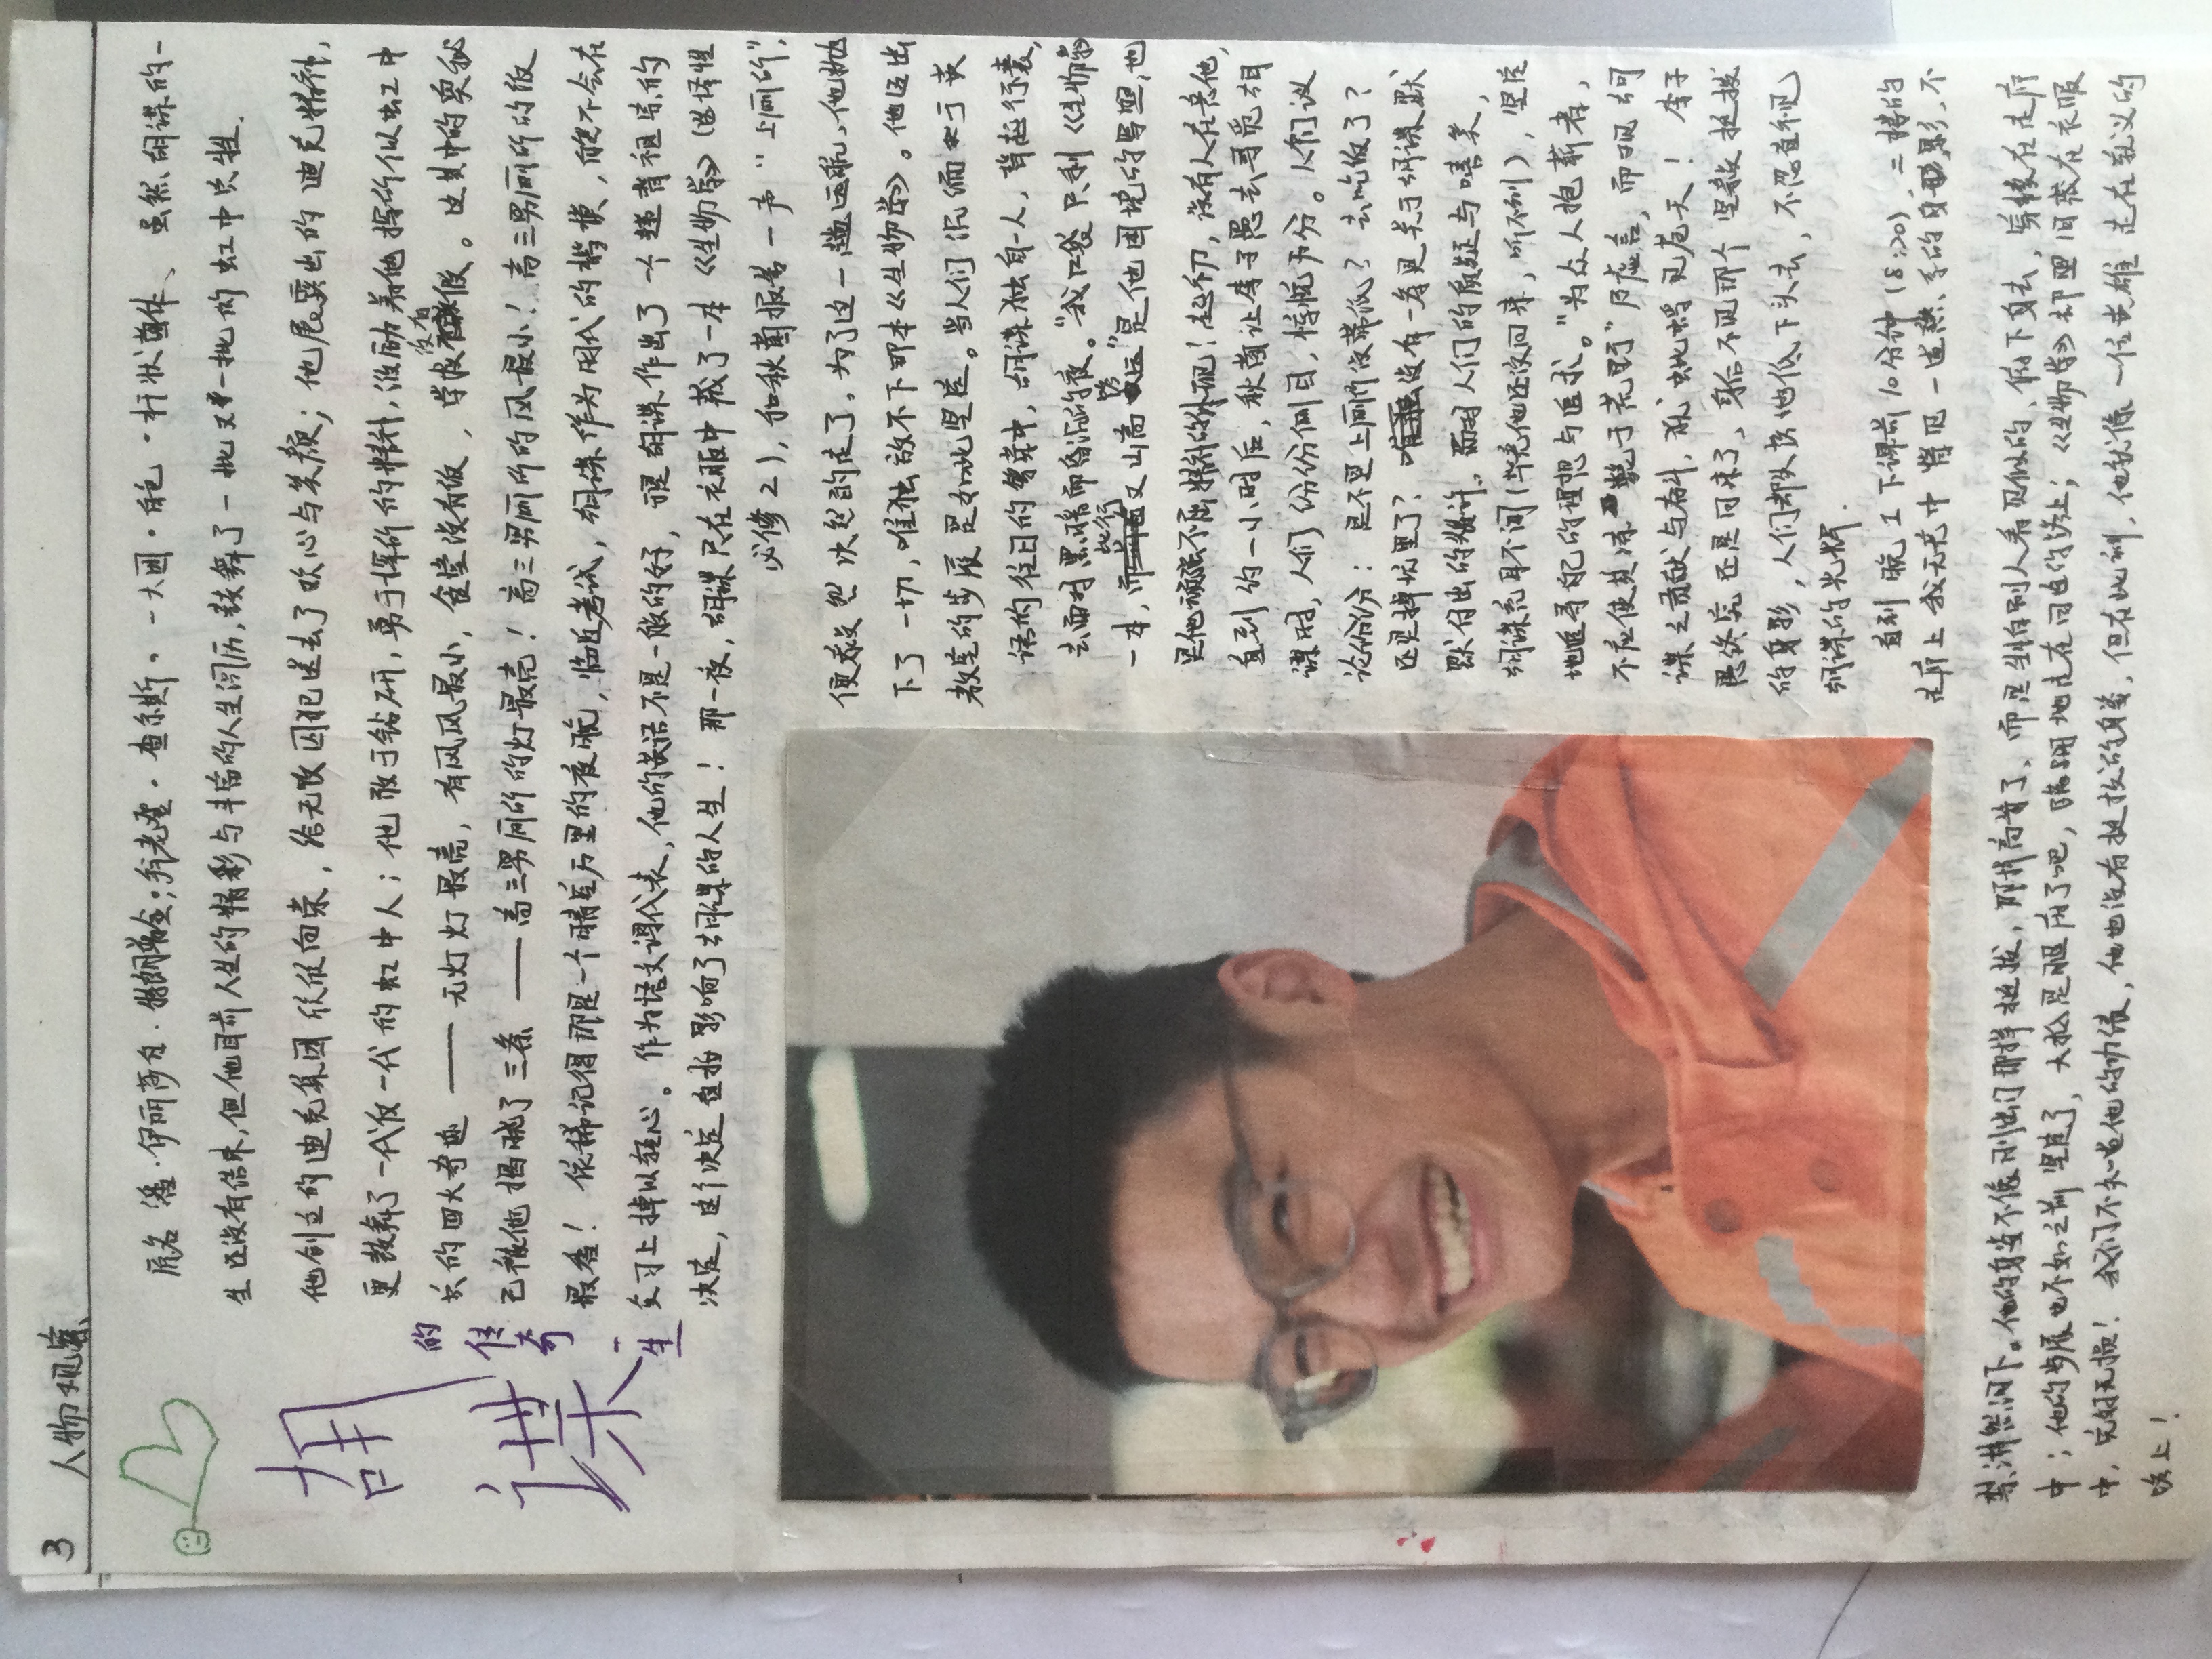 3 人物观察
胡谍
的传奇一生
原名 潘·伊丽莎白·特朗普金;乔老登·查尔斯·一大团·白色·杆状菌体、虽然胡谍的一
生还没有结束,但他目前人生的精彩与丰富的人生阅历,鼓舞了一批又一批的虹中男性.
他创立的迪克集团欣欣向荣,给无数囚犯送去了欢心与笑颜;他展露出的迪克精神,
更鼓舞了一代又一代的虹中人;他敢于钻研,勇于挥所的精神,激励着他挥所似虹中
的四大奇迹——无灯灯最亮,有风风最小,食堂没有饭,学校没有假。这其中的奥秘
已被他揭晓了三条——高三男厕所的灯最亮!高三男厕所的风最小!高三男厕所的饭
最香!依稀记得那是一个晴空万里的夜晚,临近考试,胡谍作为时代的楷模,自然不会在
复习上掉以轻心。作为语文课代表,他的英语不是一般的好,于是胡谍作出了一个违背祖宗的
决定,这个决定直接影响了胡谍的人生!那一夜,胡谍只在衣服中藏了一本《生物学》(选择性
必修2),和秋菊报告一声“上厕所”,
便毅然决然的走了。为了这一趟远航,他抛
下了一切,唯独放不下那本《生物学》。他迈出
教室的步履是如此坚定。当人们沉湎于英
语的往日的繁荣中,胡谍独自一人,背起行囊,
去面对黑暗而昏沉的夜。“我口袋只剩《生物学》
一本,而此行又山高路远”是他困境的写照,也
是他顽强不屈精神的体现!起初,没有人在意他,
直到约一小时后,秋菊让李子愚去寻觅胡
谍时,人们纷纷侧目,惊慌万分。人们议
论纷纷:是不是上厕所没带纸?去吃饭了?
还是掉坑里了?没有一者是关于胡谍默
默付出的猜许。面对人们的质疑与嘻笑,
胡谍充耳不闻(毕竟他还没回来,听不到),坚定
地追寻自己的理想与追求。“为众人抱薪者,
不应使其冻毙于荒野”乃虚言,而观胡
谍之贡献与奋斗,犹蚍蜉见苍天!李子
愚终究还是回来了,身后不见那个坚毅挺拔
的身影,人们都失落地低下头去,不忍直视
胡谍的光辉.
直到晚I下课前10分钟(8:20),二楼的
走廊上我无意中瞥见一道熟悉的身影,不
禁潸然泪下。他的身姿不像刚出门那样挺拔,那样高昔了,而是生怕别人看见似的,俯下身去,穿梭在走廊
中;他的步履也不如之前坚定了,大抵是腿麻了吧,蹒跚地走在回去的路上;《生物学》却照旧藏在衣服
中,完好无损!我们不知道他的功绩,他也没有挺拔的身姿,但在此刻,他就像一位英雄走在就义的
路上!